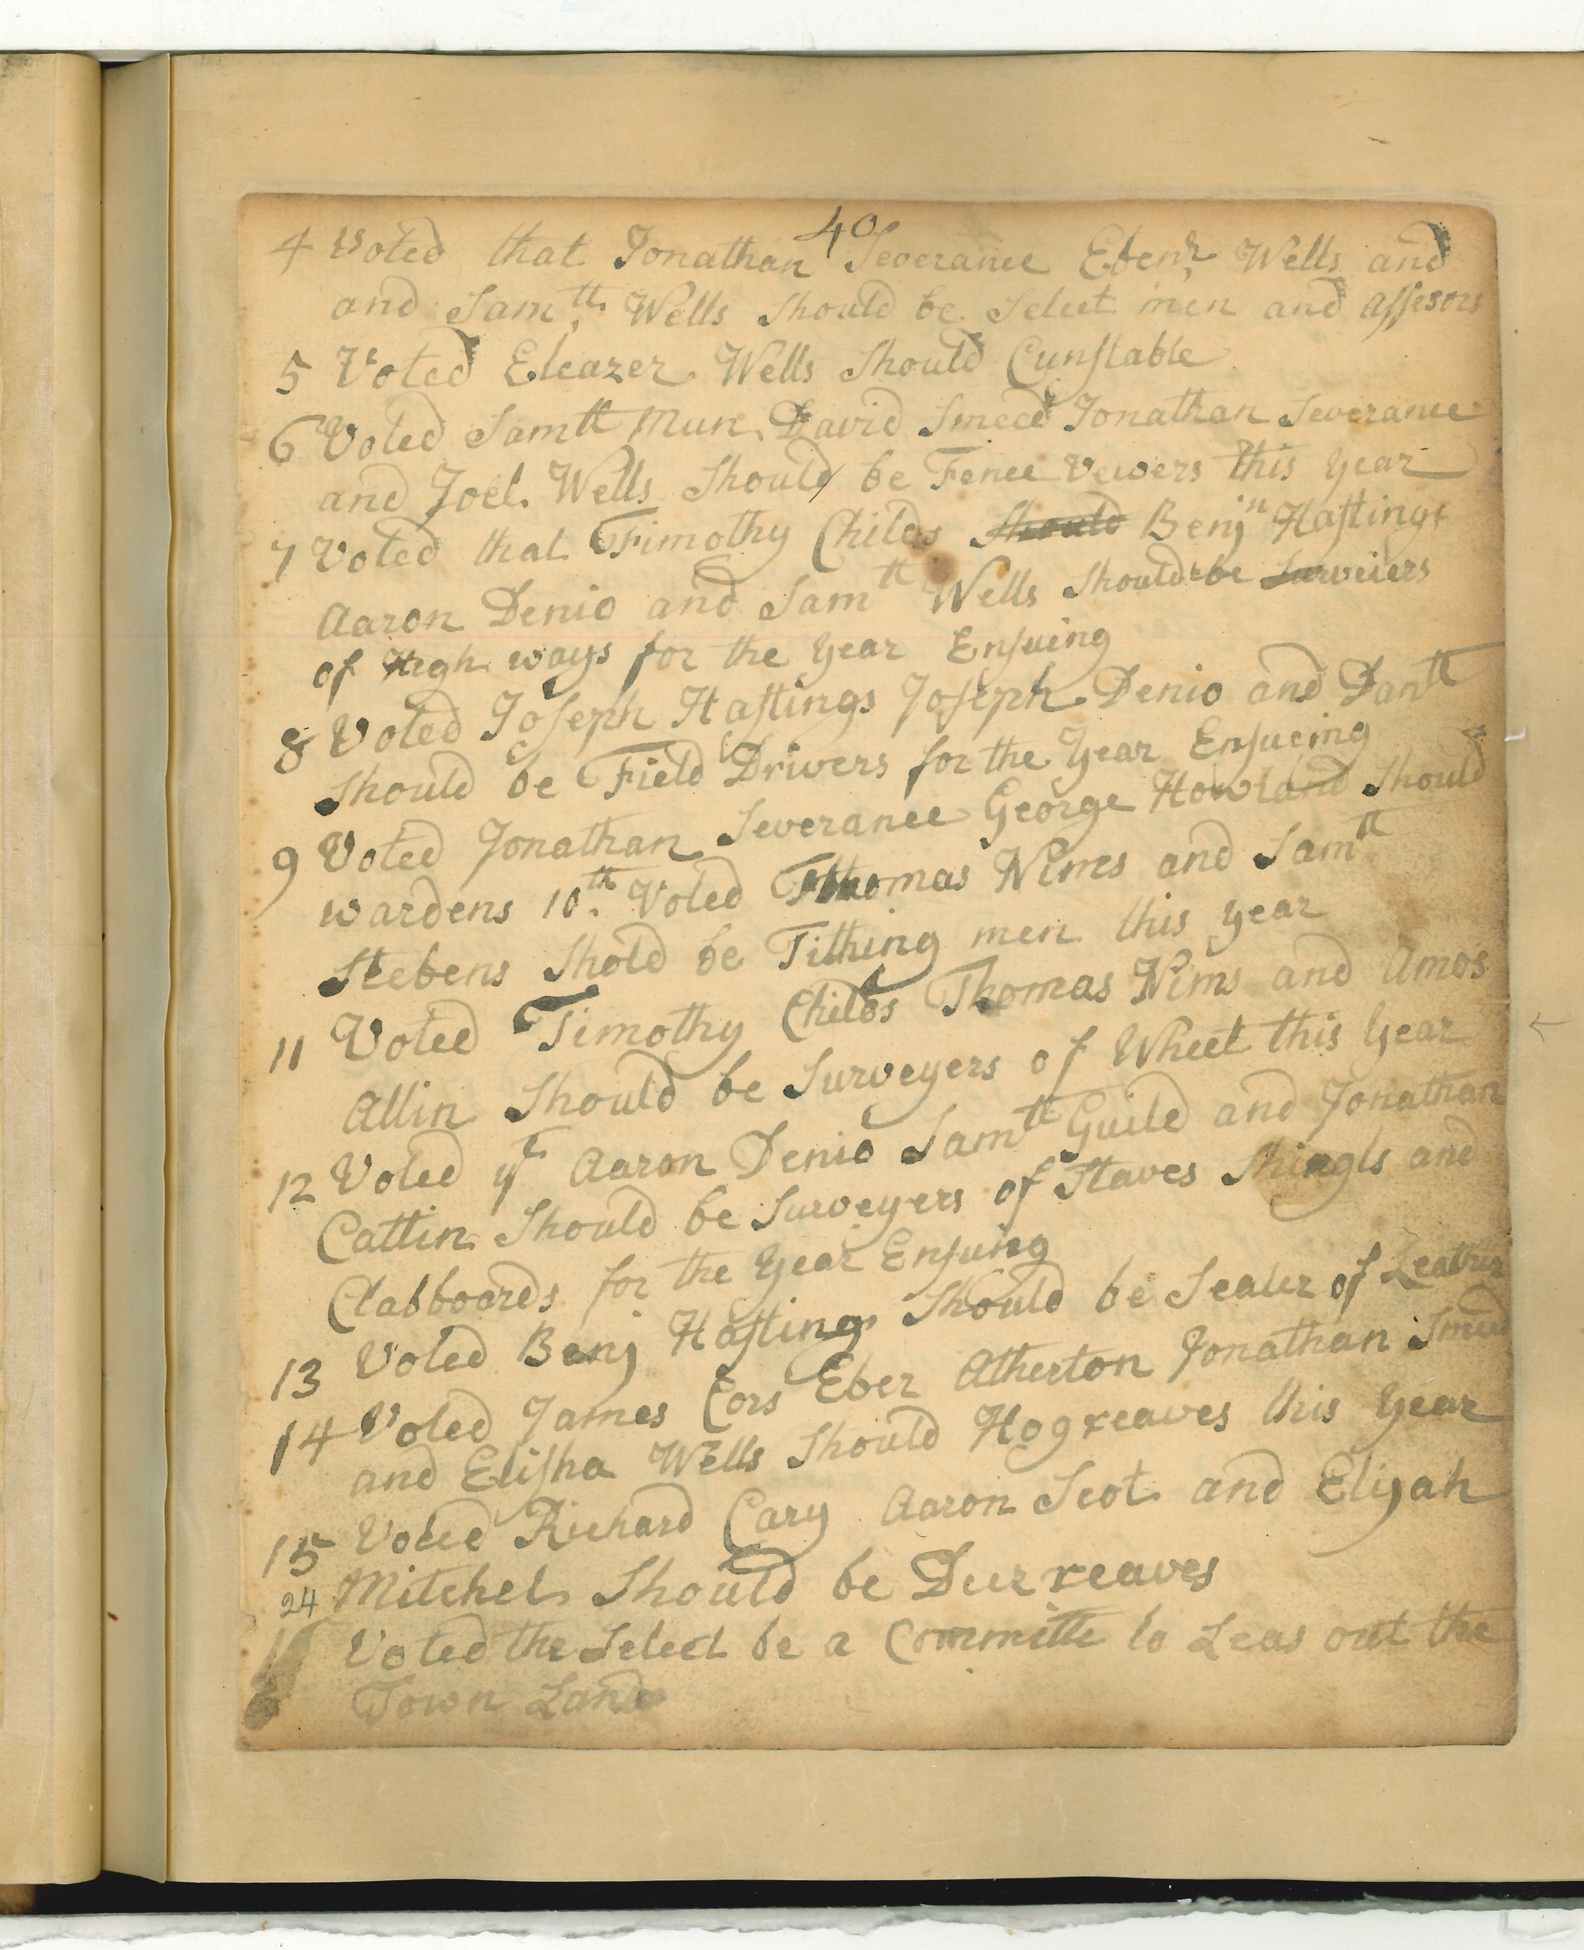 40
4 Voted that Jonathan Severance Ebenr Wells and
and Samll Wells Should be Select men and assesors
5 Voted Eleazer Wells Should Cunstable
6 Voted Samll Mun David Smeed Jonathan Severance
and Joel Wells Should be Fence vewers this year
7 Voted that Timothy Childs Should Benjn Hastings
Aaron Denio and Samll Wells Should be Surveiers
of High ways for the year Ensuing
8 Voted Joseph Hastings Joseph Denio and Danll
Should be Field Drivers for the Year Ensueing
9 Voted Jonathan Severance George Howland Should
wardens 10th Voted Thomas Nims and Samll
Stebens Shold be Tithing men this year
11 Voted Timothy Childs Thomas Nims and Amos
Allin Should be Surveyers of Wheet this Year
12 Voted yt Aaron Denio Samll Guild and Jonathan
Cattin Should be Surveyers of Staves Shingls and
Clabboards for the Year Ensuing
13 Voted Benj Hastings Should be Sealer of Leather
14 Voted James Cors Eber Atherton Jonathan Smeed
and Elisha Wells Should Hogreaves this Year
15 Voted Richard Cary Aaron Scot and Elijah
24 Mitchel Should be Deer reaves
Voted the Select be a Committe to Leas out the
Town Land